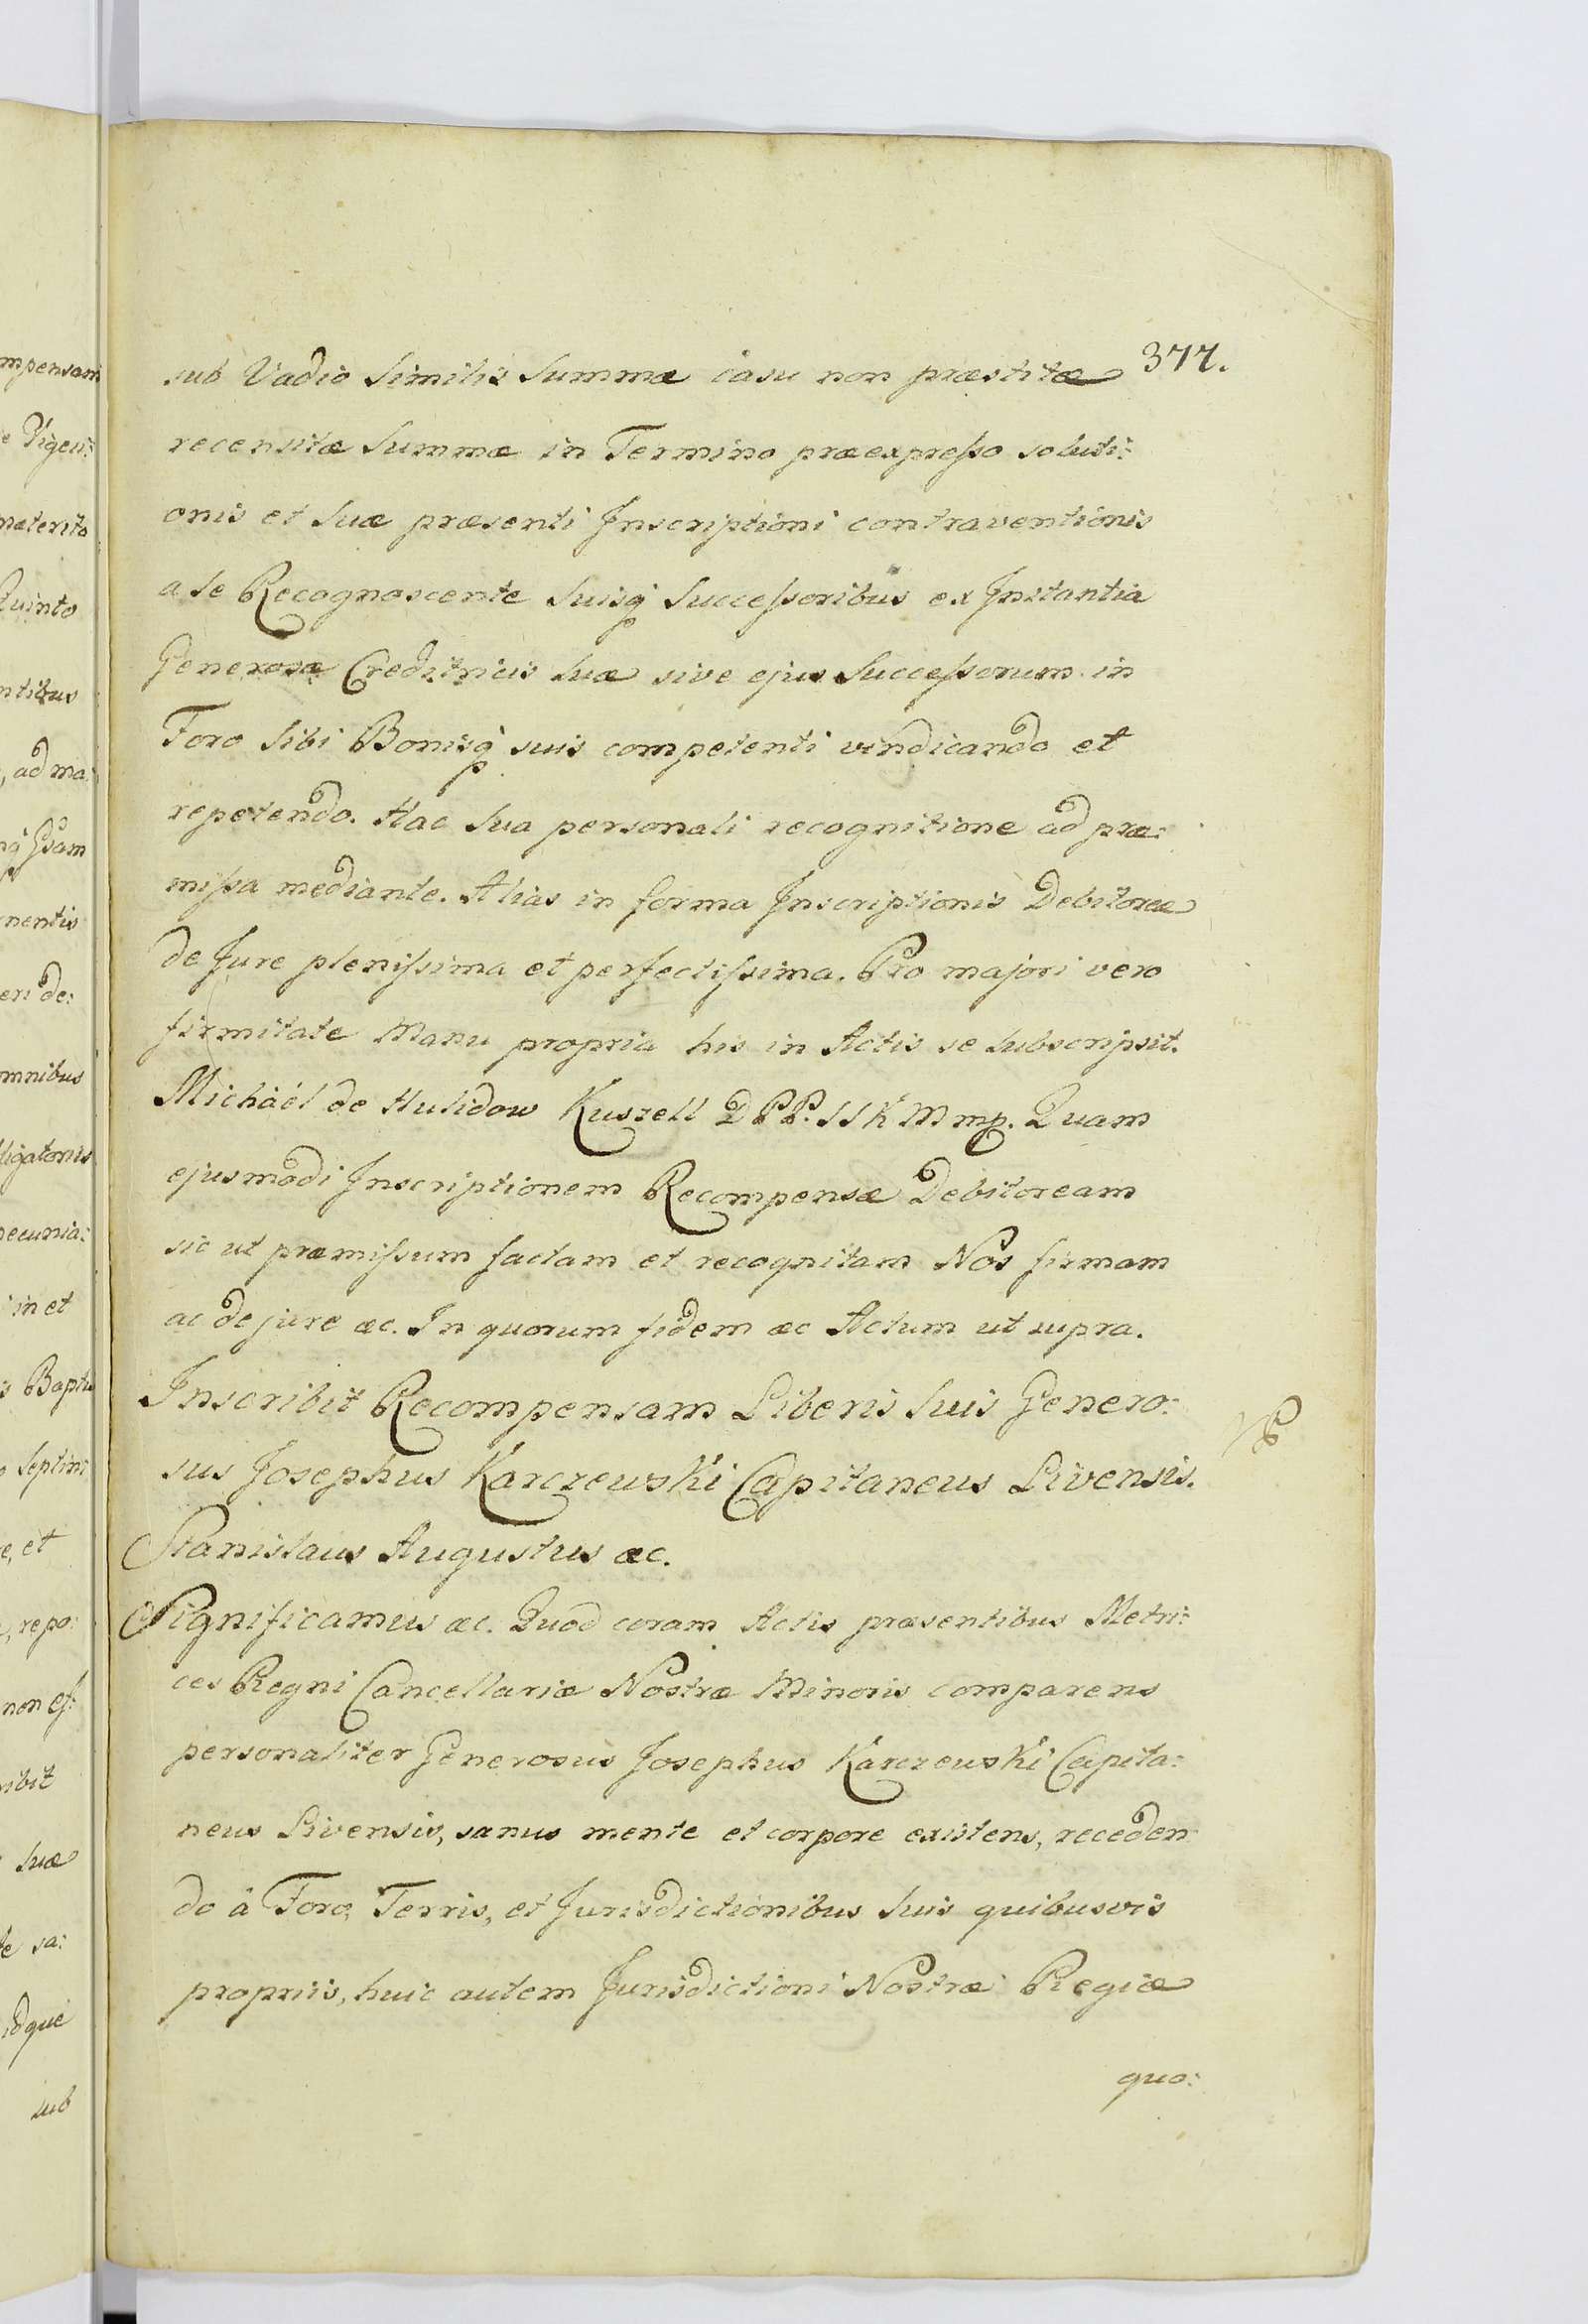 mpensam
e Vigeu:
næterito
Quinto
ntibus
, ad ma:
nentis
eri de:
omnibus
ligatonis
pecunia:
in et
s Baptis
o Septimi
e, et
, repo:
non ef:
ribit
suæ
te sa:
idque
sub
377.
sub Vadio Similis Summæ casu non præstitæ
recensitæ Summæ in Termino præexpresso soluti:
onis et Suæ præsenti Inscriptioni contraventionis
a Se Recognoscente Suisq Successoribus ex Instantia
Generosæ Creditricis Suæ sive ejus Successorum in
Foro Sibi Bonisq suis competenti vindicando et
repetendo. Hac Sua personali recognitione ad præ:
missa mediante. Alias in forma Inscriptionis Debitoreæ
de Jure plenissima et perfectissima. Pro majori vero
firmitate Manu propria his in Actis se Subscripsit.
Michaél de Hulidow Kuszell D P P. S S K M mp. Quam
ejusmodi Inscriptionem Recompensæ Debitoream
sic ut præmissum factam et recognitam Nos firmam
ac de jure æc. In quorum fidem æc Actum ut supra.
Inscribit Recompensam Liberis Suis Genero:
sus Josephus Karczewski Capitaneus Livensis.
Stanislaus Augustus æc.
Significamus æc. Quod coram Actis præsentibus Metri:
ces Regni Cancellariæ Nostræ Minoris comparens
personaliter Generosus Josephus Karczewski Capita:
neus Livensis, sanus mente et corpore existens, receden
do â Foro, Terris, et Jurisdictionibus Suis quibusvis
propriis, huic autem Jurisdictioni Nostræ Regiæ
quo: